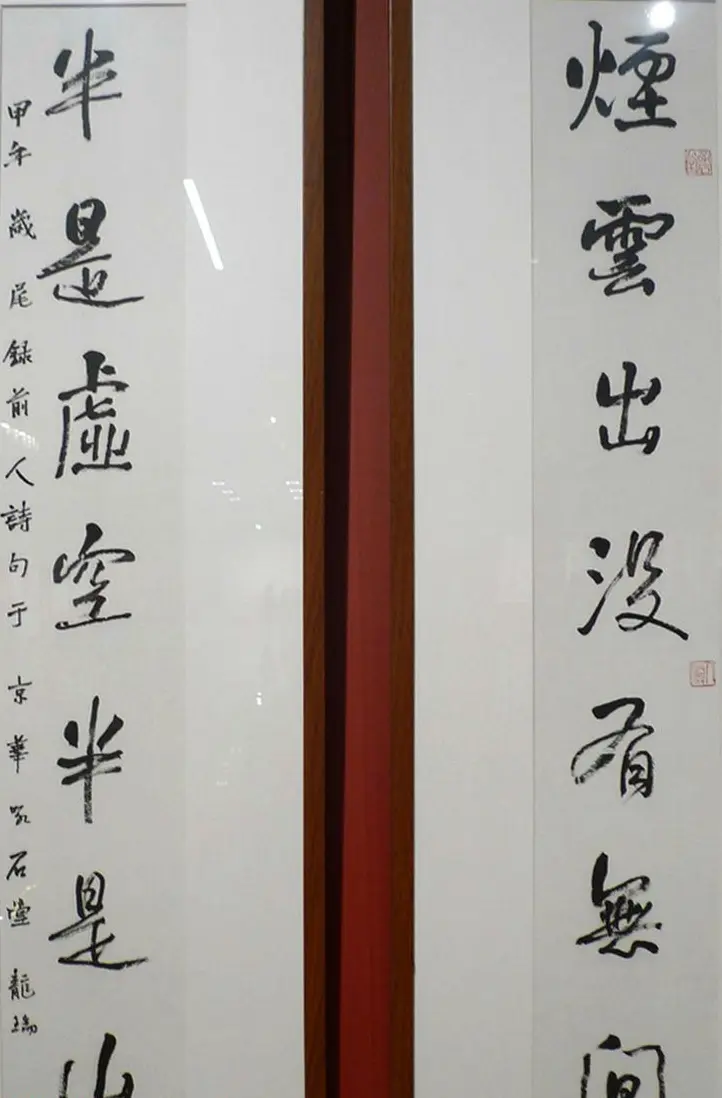 煙雲出没有無間
半是虛空半是山
甲午歲尾錄前人詩句于京華 石堂龍瑞